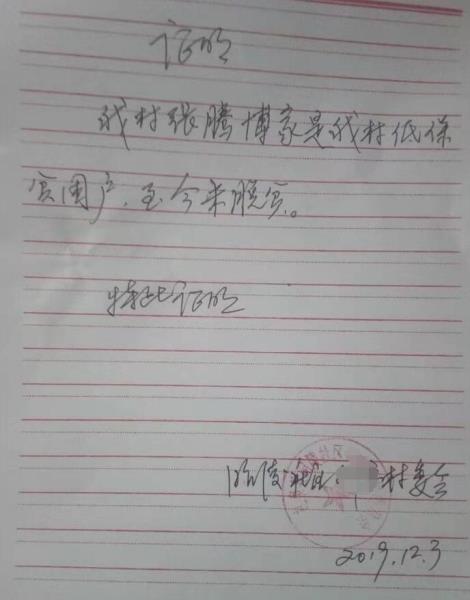 证明
我村张腾博家是我村低保
贫困户，至今未脱贫。
特此证明
村委会
2019.12.3